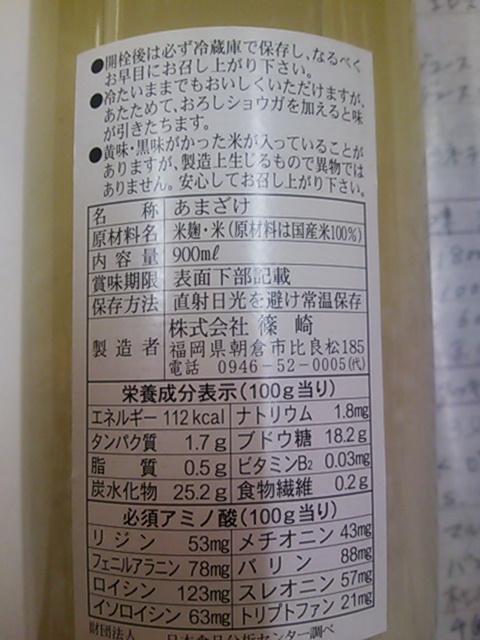 ●開栓後は必ず冷蔵庫で保存し、なるべく
お早目にお召し上がり下さい。
●冷たいままでもおいしくいただけますが、
あたためて、おろしショウガを加えると味
が引きたちます。
●黄味・黒味がかった米が入っていることが
ありますが、製造上生じるもので異物では
ありません。安心してお召し上がり下さい。
名称 あまざけ
原材料名 米麹・米（原材料は国産米100%）
内容量 900mℓ
賞味期限 表面下部記載
保存方法 直射日光を避け常温保存
製造者 株式会社 篠崎
福岡県朝倉市比良松185
電話 0946-52-0005(代)
栄養成分表示（100g当り）
エネルギー 112kcal ナトリウム 1.8mg
タンパク質 1.7g ブドウ糖 18.2g
脂質 0.5g ビタミンB2 0.03mg
炭水化物 25.2g 食物繊維 0.2g
必須アミノ酸（100g当り）
リジン 53mg メチオニン 43mg
フェニルアラニン 78mg バリン 88mg
ロイシン 123mg スレオニン 57mg
イソロイシン 63mg トリプトファン 21mg
財団法人 日本食品分析センター調べ